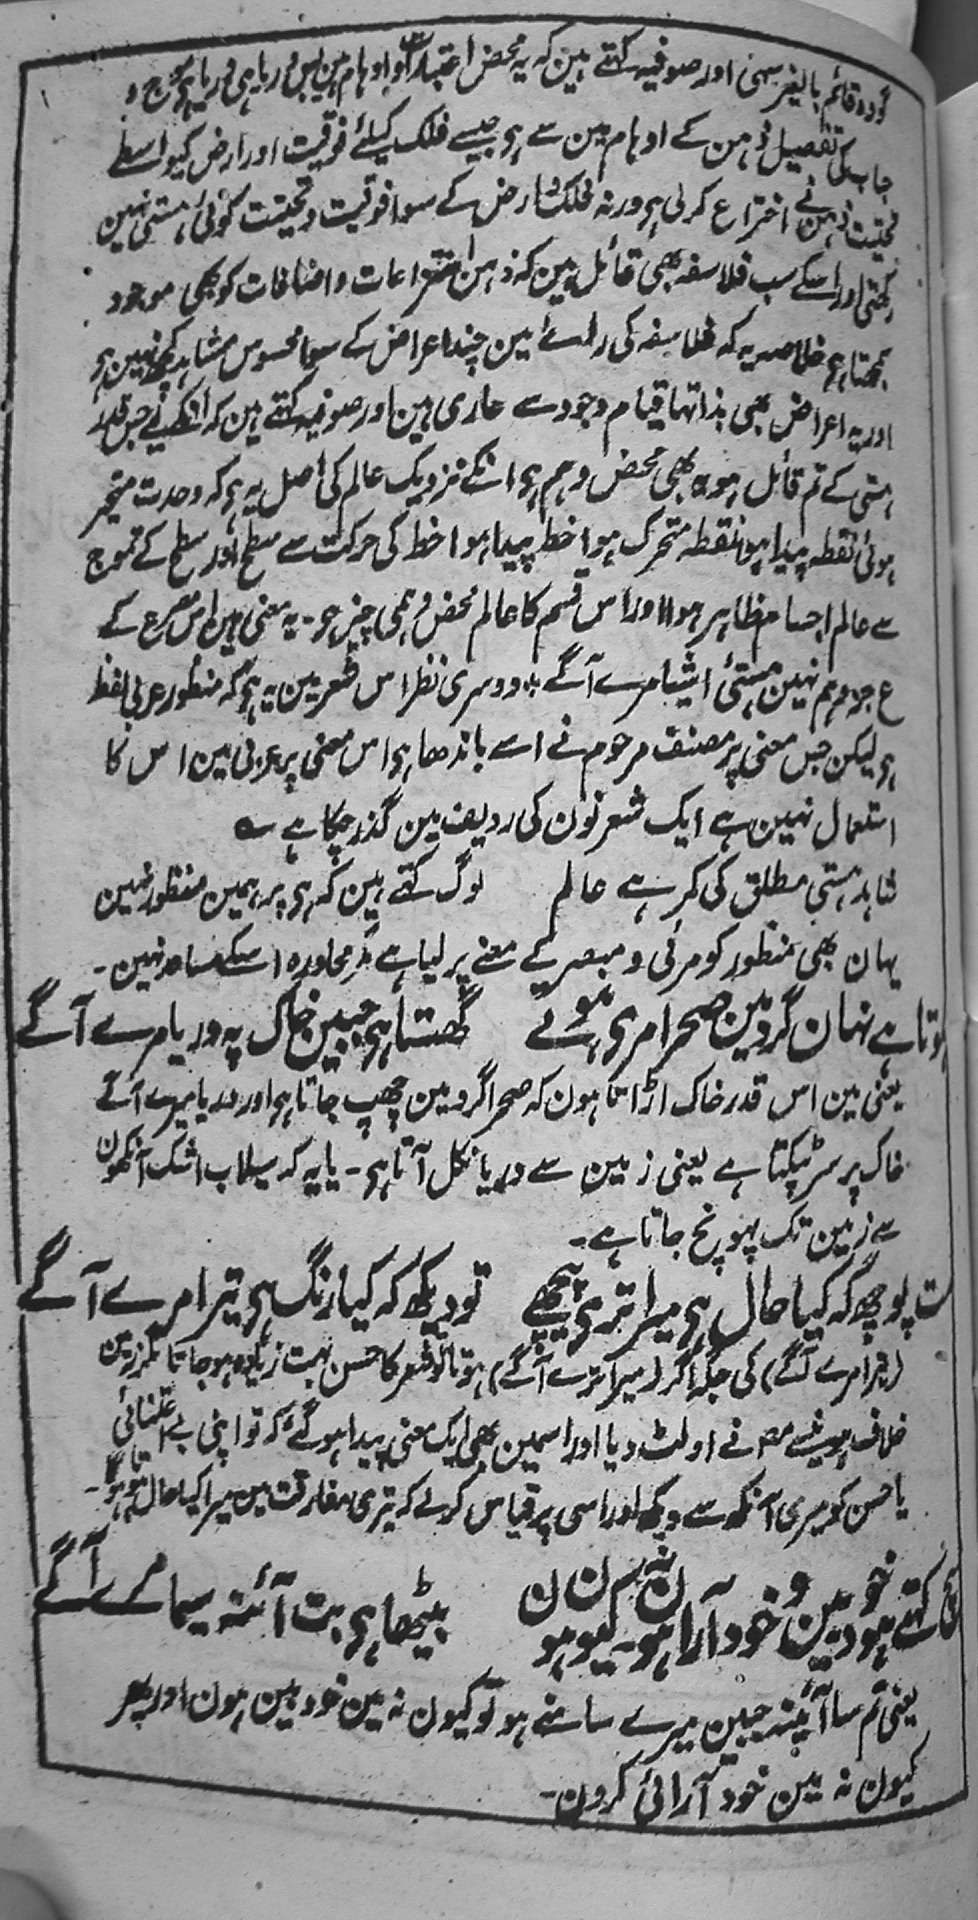 گو وہ قائم بالغیر سہی اور صوفیہ کہتے ہین کہ یہ محض اعتبارات و اوہام ہین بس دریا ہی دریا ہی موج و
حباب کی تفصیل ذہن کے اوہام مین سے ہی جیسے فلک کیلئے فوقیت اور ارض کیواسطے
تحتیت ذہن نے اختراع کر لی ہی ورنہ فلک و ارض کے سوا فوقیت و تحتیت کوئی ہستی نہین
رکھتی اور اسکے سب فلاسفہ بھی قائل ہین کہ ذہن انتزاعات و اضافات کو بھی موجود
سمجھتا ہی خلاصہ یہ کہ فلاسفہ کی رائے مین چند اعراض کے سوا محسوس مشاہد کچھ نہین ہی
اور یہ اعراض بھی بذاتہا قیام وجود سے عاری ہین اور صوفیہ کہتے ہین کہ انکے لیے جس قدر
ہستی کے تم قائل ہو وہ بھی محض وہم ہی انکے نزدیک عالم کی اصل یہ ہی کہ وحدت متحیز
ہوئی نقطہ پیدا ہوا نقطہ متحرک ہوا خط پیدا ہوا خط کی حرکت سے سطح اور سطح کے تموج
سے عالم اجسام ظاہر ہوا اور اس قسم کا عالم محض وہمی چیز ہی ۔ یہ معنی ہین اس مصرع کے
ع جز وہم نہین ہستئ اشیا مرے آگے * دوسری نظر اس شعر مین یہ ہی کہ منظور عربی لفظ
ہی لیکن جس معنی پر مصنف مرحوم نے اسے باندھا ہی اس معنی پر عربی مین اس کا
استعمال نہین ہے ایک شعر نون کی ردیف مین گذر چکا ہے ؎
شاہد ہستی مطلق کی کمر ہے عالم لوگ کہتے ہین کہ ہی پر ہمین منظور نہین
یہان بھی منظور کو مرئی و مبصر کے معنے پر لیا ہے مگر محاورہ اسکے مساعد نہین ۔
ہوتا ہے نہان گرد مین صحرا مری ہوتے گھستا ہی جبین خاک پہ دریا مرے آگے
یعنی مین اس قدر خاک اڑاتا ہون کہ صحرا گرد مین چھپ جاتا ہی اور دریا میرے آگے
خاک پر سر ٹپکتا ہے یعنی زمین سے دریا نکل آتا ہی ۔ یا یہ کہ سیلاب اشک آنکھون
سے زمین تک پہونچ جاتا ہے ۔
مت پوچھ کہ کیا حال ہی میرا تری پیچھے تو دیکھ کہ کیا رنگ ہی تیرا مرے آگے
(تیرا مرے آگے) کی جگہ اگر (میرا ترے آگے) ہوتا تو شعر کا حسن بہت زیادہ ہو جاتا مگر زمین
خلاف ہونیسے مصنف نے اولٹ دیا اور اسمین بھی ایک معنی پیدا ہو گئے کہ تو اپنی بے اعتنائی
یا حسن کو میری آنکھ سے دیکھ اور اسی پر قیاس کرلے کہ تیری مفارقت مین میرا کیا حال ہوتا ہوگا ۔
سچ کہتے ہو خود بین و خود آرا ہون نہ کیون ہون بیٹھا ہی بت آئنہ سیما مرے آگے
یعنی تم سا آئینہ جبین میرے سامنے ہو تو کیون نہ مین خود بین ہون اور پھر
کیون نہ مین خود آرائی کرون ۔